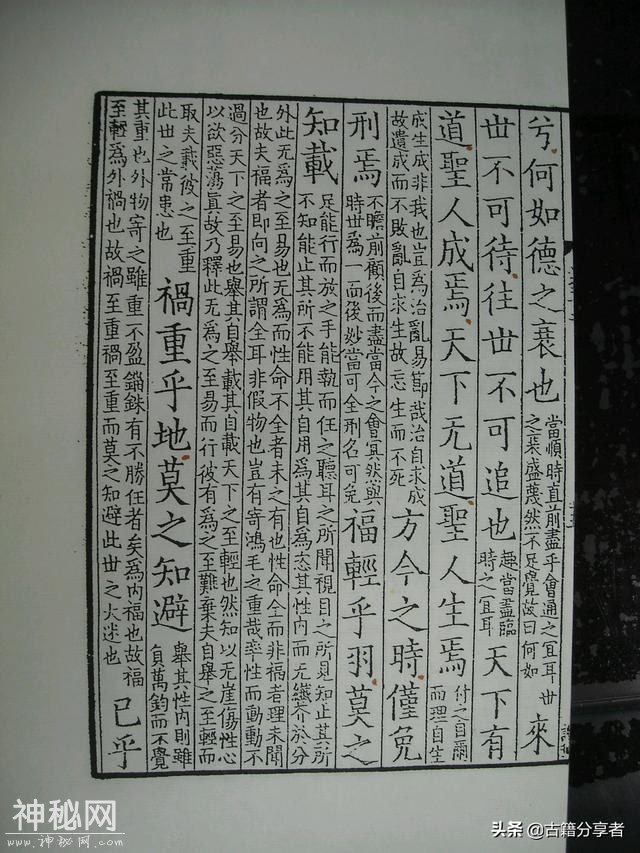 兮何如德之衰也
當順時直前盡乎會通之宜耳世
之衰盛蔑然不足覺故曰何如
來
世不可待往世不可追也
趣當盡臨
時之宜耳
天下有
道聖人成焉天下无道聖人生焉
付之自爾
而理自生
成生成非我也豈爲治亂易節哉治自求成
故遺成而不敗亂自求生故忘生而不死
方今之時僅免
刑焉
不瞻前顧後而盡當今之會冥然與
時世爲一而後妙當可全刑名可免
福輕乎羽莫之
知載
足能行而放之手能執而任之聽耳之所聞視目之所見知止其所
不知能止其所不能用其自用爲其自爲恣其性内而无纖芥於分
外此无爲之至易也无爲而性命不全者未之有也性命全而非福者理未聞
也故夫福者即向之所謂全耳非假物也豈有寄鴻毛之重哉率性而動動不
過分天下之至易也舉其自舉載其自載天下之至輕也然知以无崖傷性心
以欲惡蕩真故乃釋此无爲之至易而行彼有爲之至難棄夫自舉之至輕而
取夫載彼之至重
此世之常患也
禍重乎地莫之知避
舉其性内則雖
負萬鈞而不覺
其重也外物寄之雖重不盈錙銖有不勝任者矣爲内福也故福
至輕爲外禍也故禍至重禍至重而莫之知避此世之大迷也
已乎
神秘网
www.神秘网.COM
头条 @古籍分享者